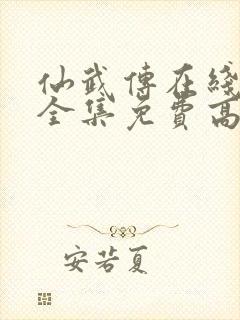 仙武傳在綫
全集免費高
安若夏